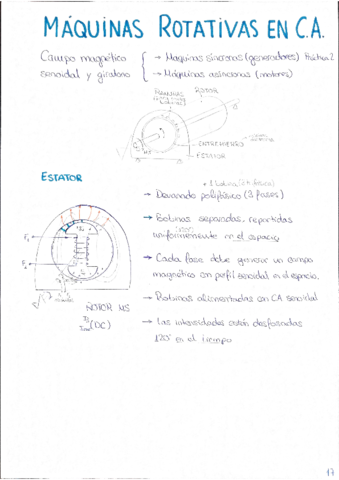 MÁQUINAS ROTATIVAS EN C.A.
Campo magnético
senoidal y giratorio
→ Maquinas síncronas (generadores) Práctica 2
→ Máquinas asíncronas (motores)
RANURAS
ROTOR
ENTREHIERRO
ESTATOR
ESTATOR
→ Devanado polifásico (3 fases)
→ Bobinas separadas, repartidas
uniformemente en el espacio
→ Cada fase debe generar un campo
magnético con perfil senoidal en el espacio.
→ Bobinas alimentadas con CA senoidal
→ Las intensidades están desfasadas
120° en el tiempo
ROTOR NS
(DC)
17